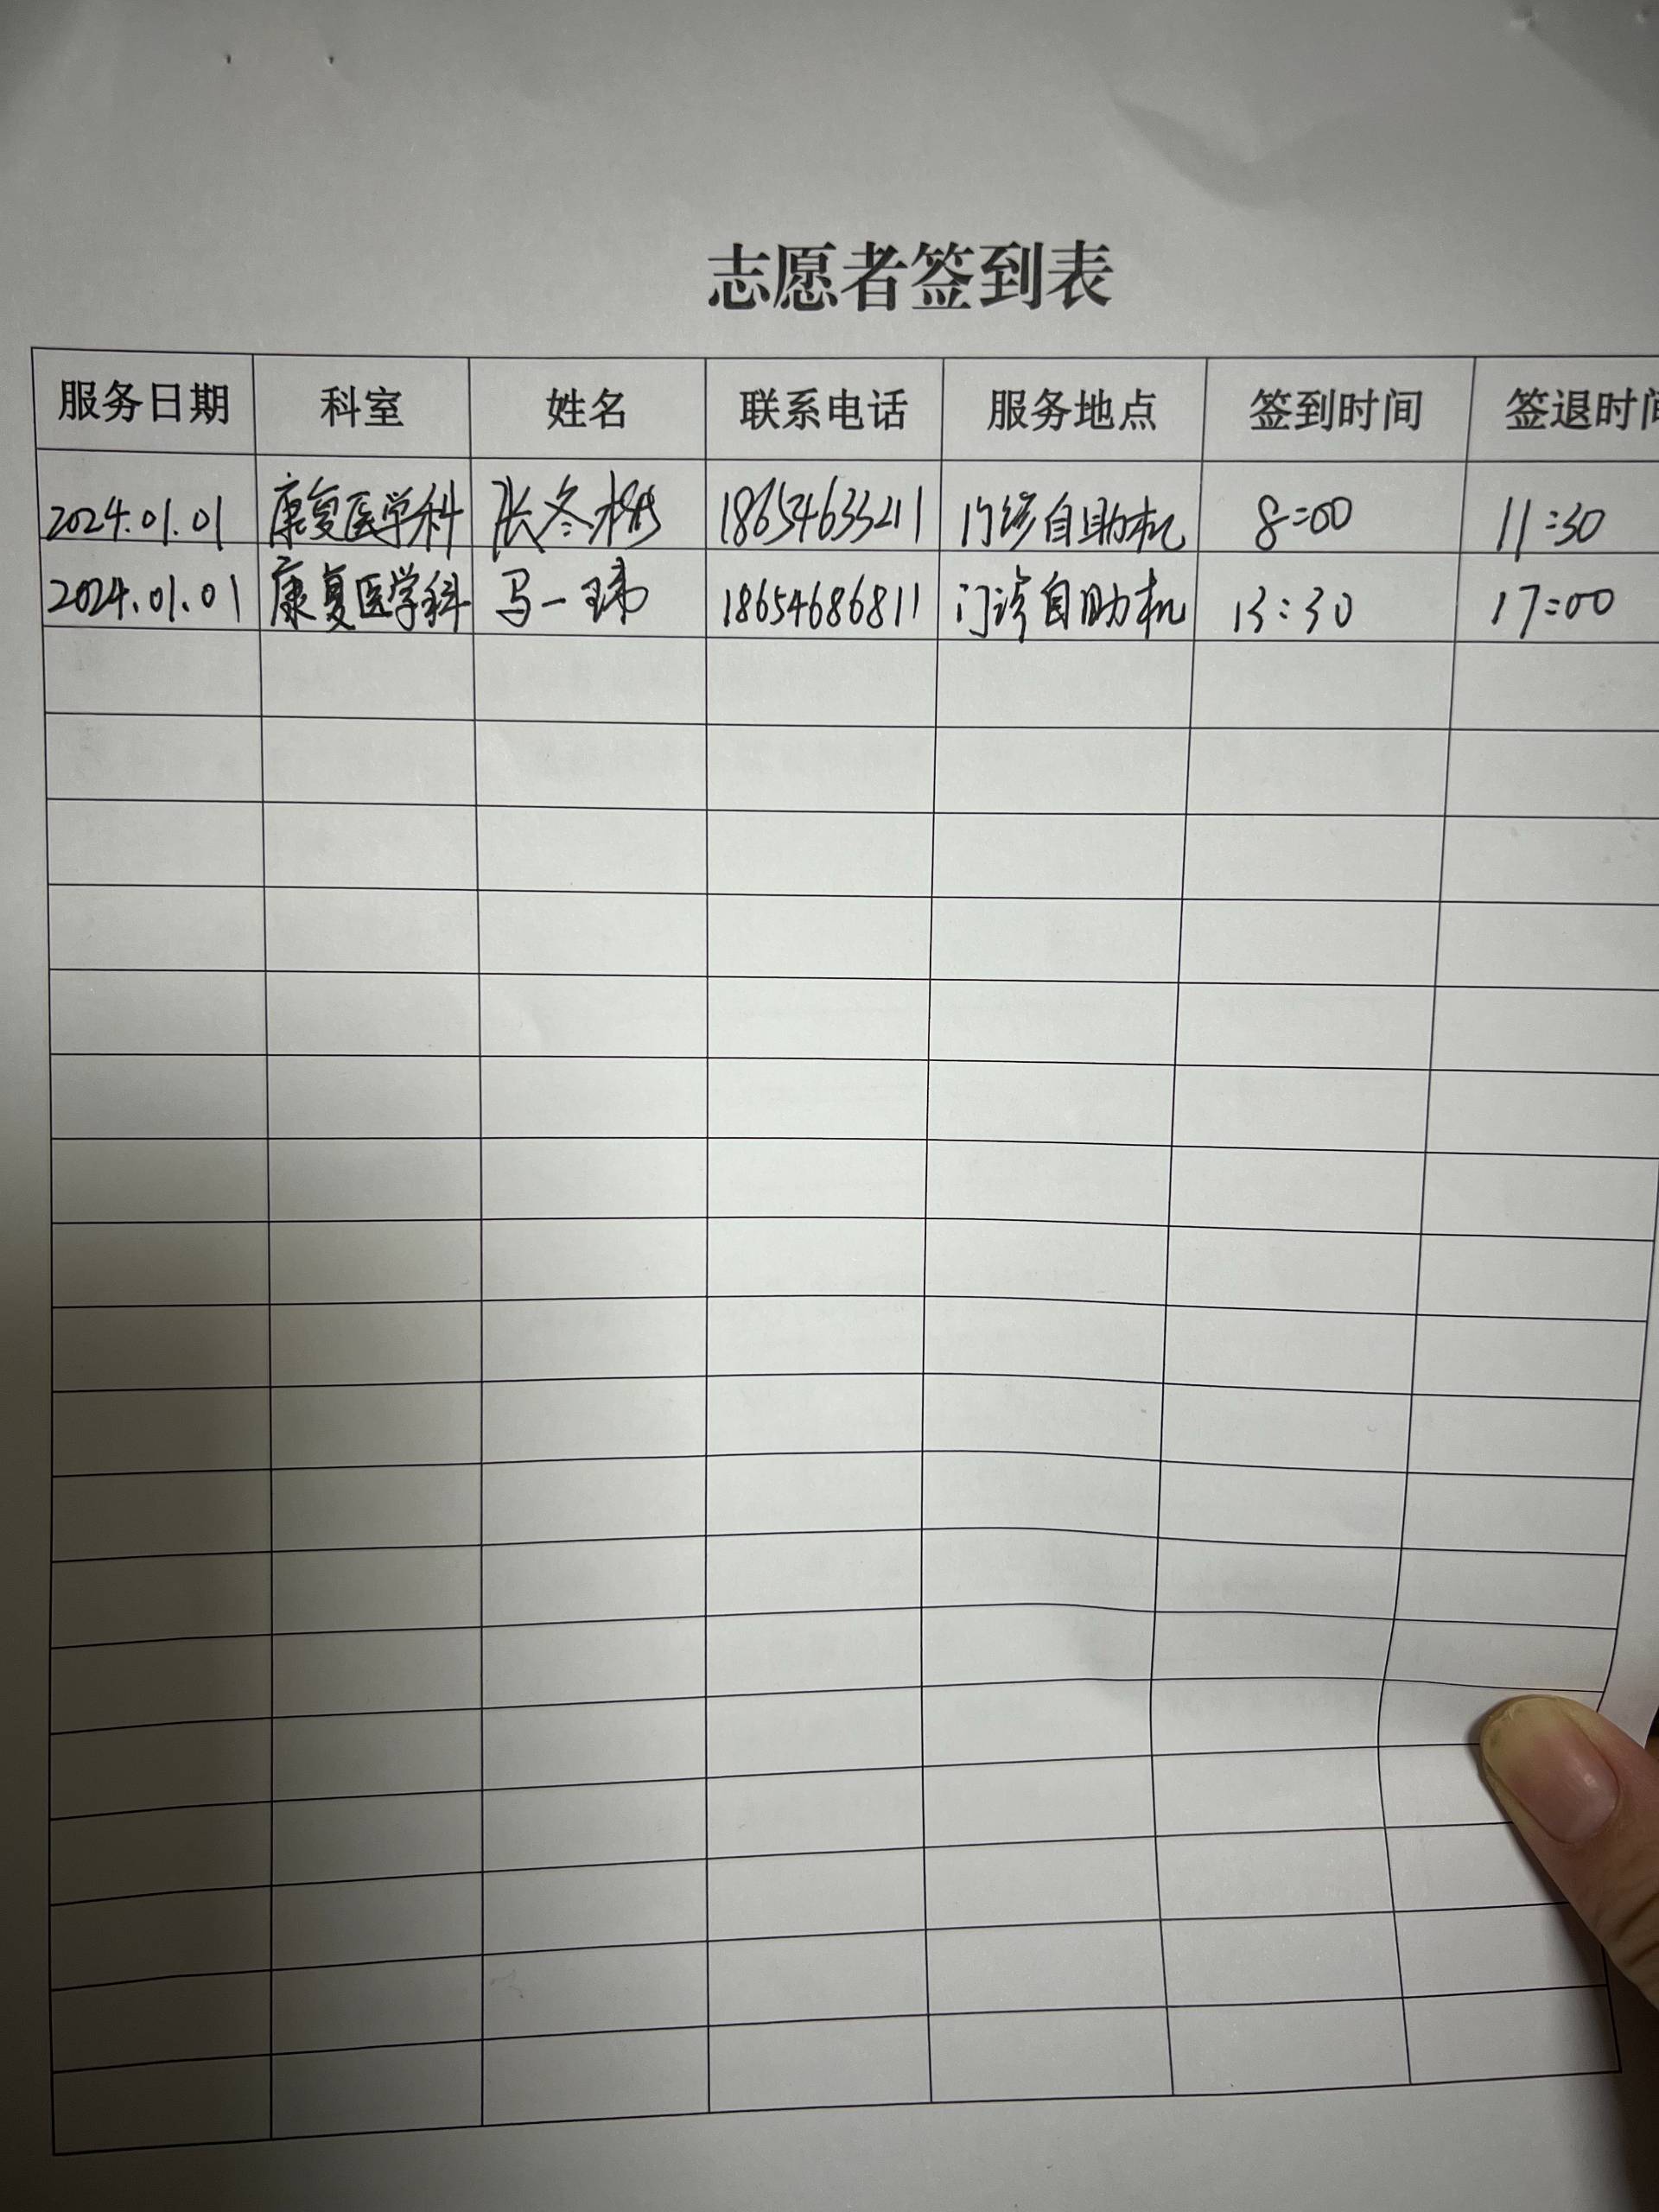 志愿者签到表
服务日期 科室 姓名 联系电话 服务地点 签到时间 签退时间
2024.01.01 康复医学科 张冬梅 18654633211 门诊自助机 8:00 11:30
2024.01.01 康复医学科 马一玮 18654686811 门诊自助机 13:30 17:00